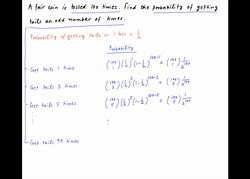 A fair coin is tossed 100 times. Find the probability of getting
tails an odd number of times.
Probability of getting tails in 1 toss = 1/2
Probability
Get tails 1 time (100 1) (1/2) (1-1/2)^100-1 = (100 1) 1/2^100
Get tails 3 times (100 3) (1/2)^3 (1-1/2)^100-3 = (100 3) 1/2^100
Get tails 5 times (100 5) (1/2)^5 (1-1/2)^100-5 = (100 5) 1/2^100
Get tails 99 times